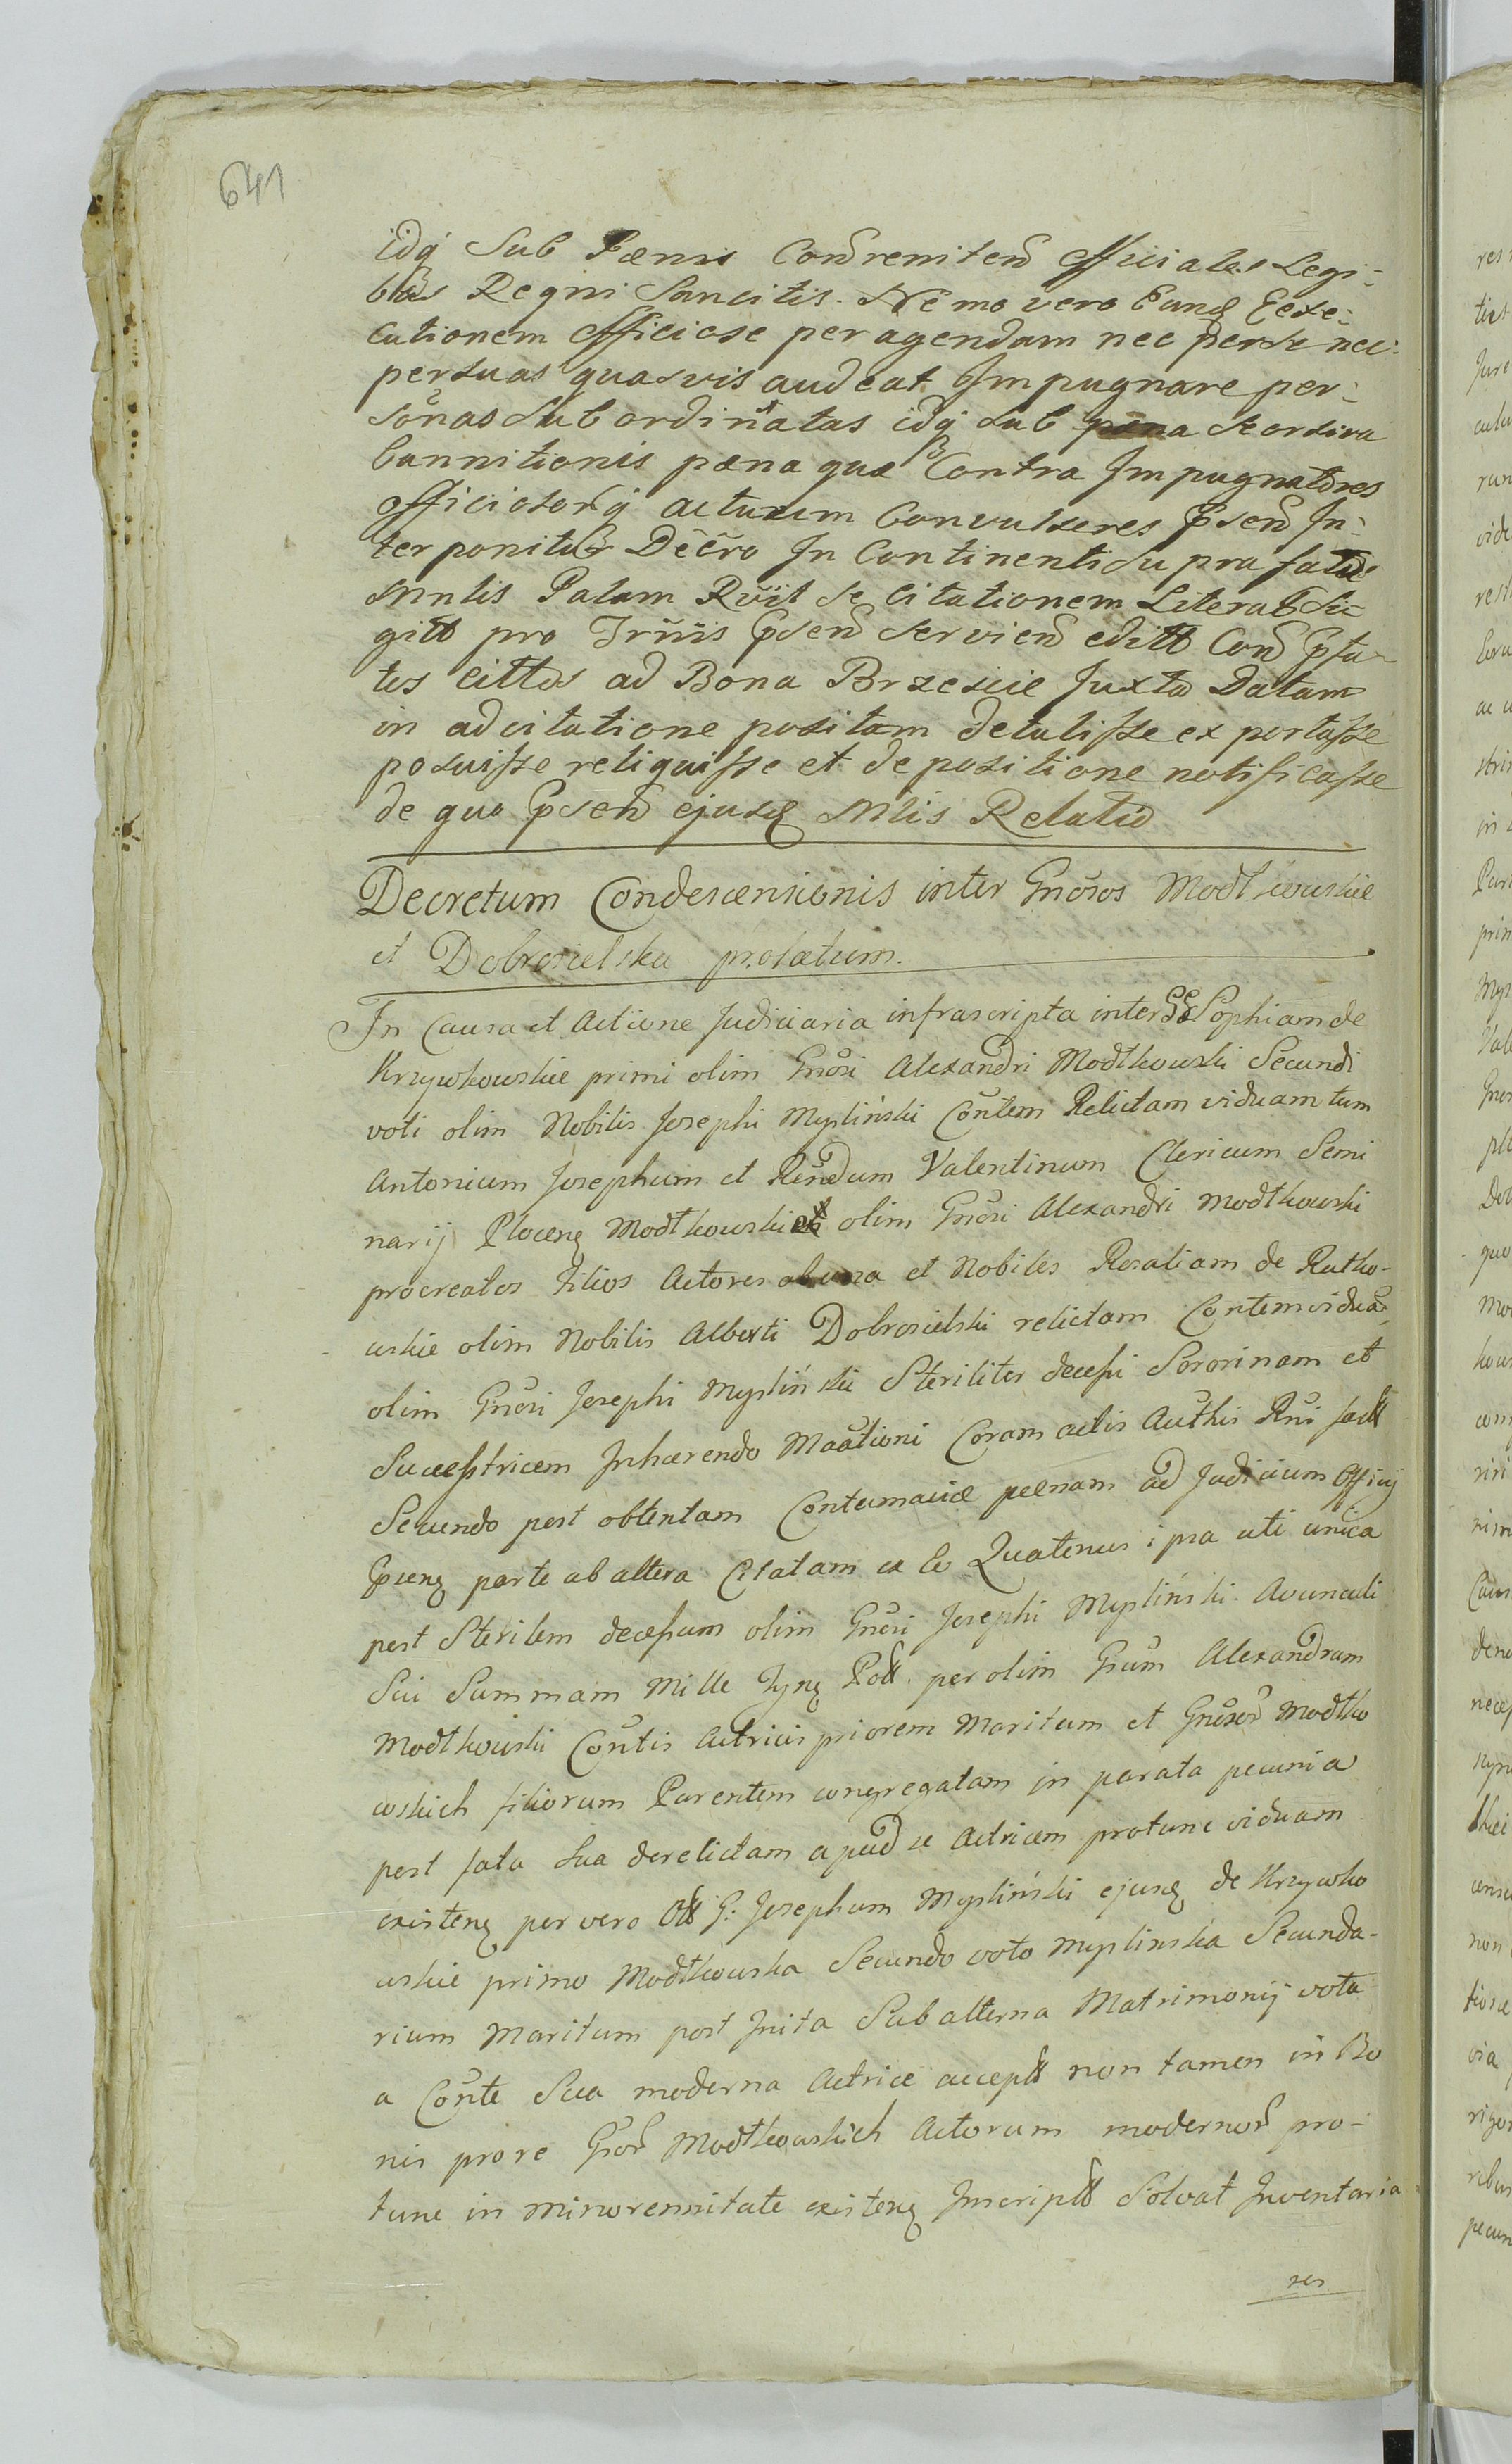 641
idq Sub Pænis Cond renitend Officiales Legi-
bus Regni Sancitis. Nemo vero Eand Exe-
cutionem Officiose peragendam nec per se nec
per suas quasvis audeat Impugnare per-
sonas Subordinatas idq sub pæna Seorsiva
bannitionis pæna quæ Contra Impugnatores
Officiosorq actuum Convulsores Psend In-
terponitur Decro In Continenti Suprafatus
Mnlis Palam Rvit se Citationem Literat Si-
gitt pro Trnis Psend serviend editt Cond Psa-
tos Cittos ad Bona Brzescie Juxta Datam
in ad citatione positam detulisse exportasse
posuisse reliquisse et de positione notificasse
de quo Psend ejusd Mlis Relatio
Decretum Condescensionis inter Gnosos Modtkowskie
et Dobrosielska prolatum.
In Causa et Actione Judiciaria infrascripta inter GG Sophiam de
Krzywkowskie primi olim Gnosi Alexandri Modtkowski Secundi
voti olim Nobilis Josephi Mysliński Contem Relictam viduam tum
Antonium Josephum et Rendum Valentinum Clericum Semi
narij Plocen Modtkowskie olim Gnosi Alexandri Modtkowski
procreatos Filios Actores ab una et Nobiles Rosaliam de Rutko-
wskie olim Nobilis Alberti Dobrosielski relictam Contem viduã
olim Gnosi Josephi Mysliński Steriliter decessi Sororinam et
Successtricem Inhærendo Maationi Coram actis Authis Rni fact
Secundo post obtentam Contumaciæ pænam ad Judicium Officij
Psens parte ab altera Citatam ex eo Quatenus ipsa uti unica
post Sterilem decessum olim Gnosi Josephi Mysliński Avunculi
Sui Summam Mille Tyn Poll. per olim Gnum Alexandrum
Modtkowski Contis Actricis priorem Maritum et Gnosor Modtko
wskich filiorum Parentem congregatam in parata pecunia
post fata sua derelictam apud se Actricem protunc viduam
existen per vero Oll G: Josephum Mysliński ejusd de Krzywko
wskie primo Modtkowska Secundo voto Myslinska Secunda-
rium Maritum post Inita Subalterna Matrimonij vota
a Conte Sua moderna Actrice accept non tamen in Bo
nis pro re Gnor Modtkowskich Actorum modernor pro-
tunc in minorennitate existen Inscript Solvat Inventaria
res